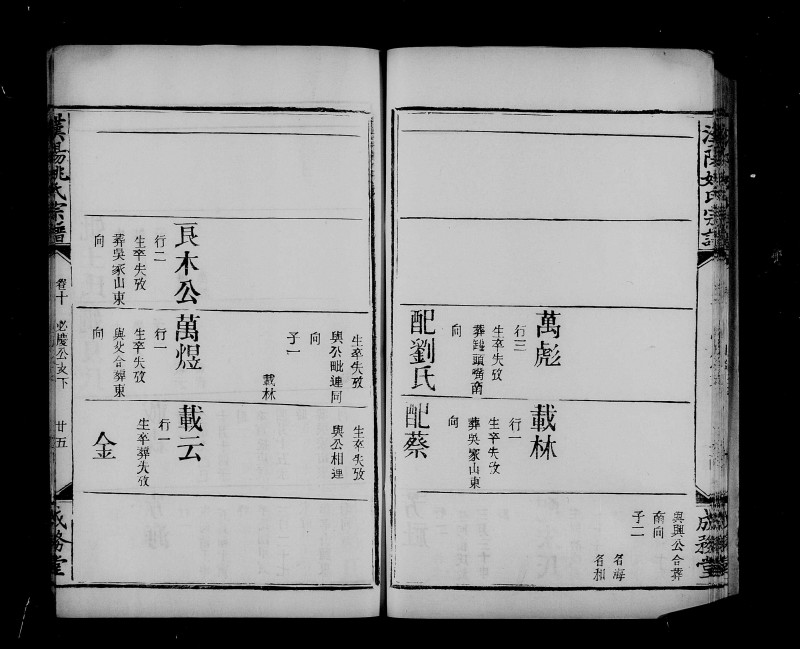 漢陽姚氏宗譜
成務堂
吳與公合葬
南向
子二
名海
名和
萬彪
行三
生卒失攷
葬罈頭嘴南
向
配劉氏
載林
行一
生卒失攷
葬吳家山東
向
配蔡
生卒失攷
與公毗連同
向
子一
載林
生卒失攷
與公相連
良木公
行二
生卒失攷
葬吳家山東
向
萬煜
行一
生卒失攷
與父合葬東
向
載云
行一
生卒葬失攷
金
漢陽姚氏宗譜
卷十
必慶公支下
廿五
成務堂